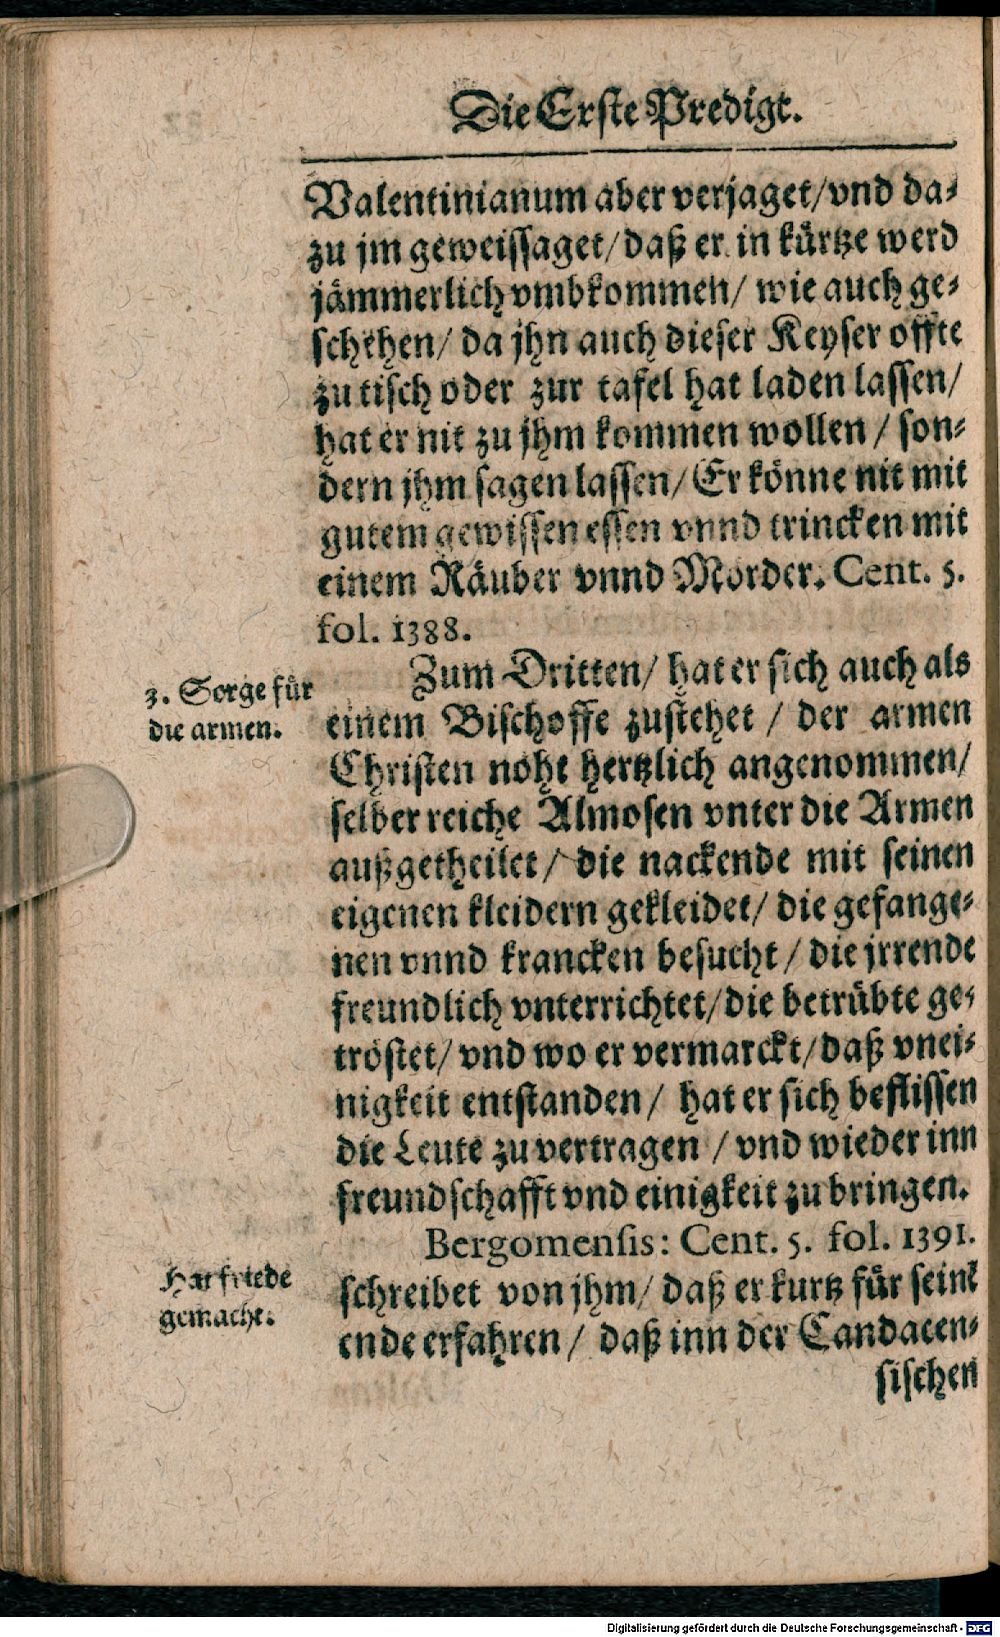 Die Erste Predigt.
Valentinianum aber verjaget/vnd da-
zu jm geweissaget/daß er in kürtze werd
jämmerlich vmbkommen/ wie auch ge-
schehen/ da jhn auch dieser Keyser offte
zu tisch oder zur tafel hat laden lassen/
hat er nit zu jhm kommen wollen / son-
dern jhm sagen lassen/ Er könne nit mit
gutem gewissen essen vnnd trincken mit
einem Räuber vnnd Mörder. Cent. 5.
fol. 1388.
3. Sorge für
die armen.
Zum Dritten/ hat er sich auch als
einem Bischoffe zustehet / der armen
Christen noht hertzlich angenommen/
selber reiche Almosen vnter die Armen
außgetheilet/ die nackende mit seinen
eigenen kleidern gekleidet/ die gefange-
nen vnnd krancken besucht / die jrrende
freundlich vnterrichtet/die betrübte ge-
tröstet/ vnd wo er vermarckt/daß vnei-
nigkeit entstanden/ hat er sich beflissen
die Leute zu vertragen / vnd wieder inn
freundschafft vnd einigkeit zu bringen.
Hat friede
gemacht.
Bergomensis: Cent. 5. fol. 1391.
schreibet von jhm/ daß er kurtz für seint
ende erfahren/ daß inn der Candacen-
sischen
Digitalisierung gefördert durch die Deutsche Forschungsgemeinschaft - DFG